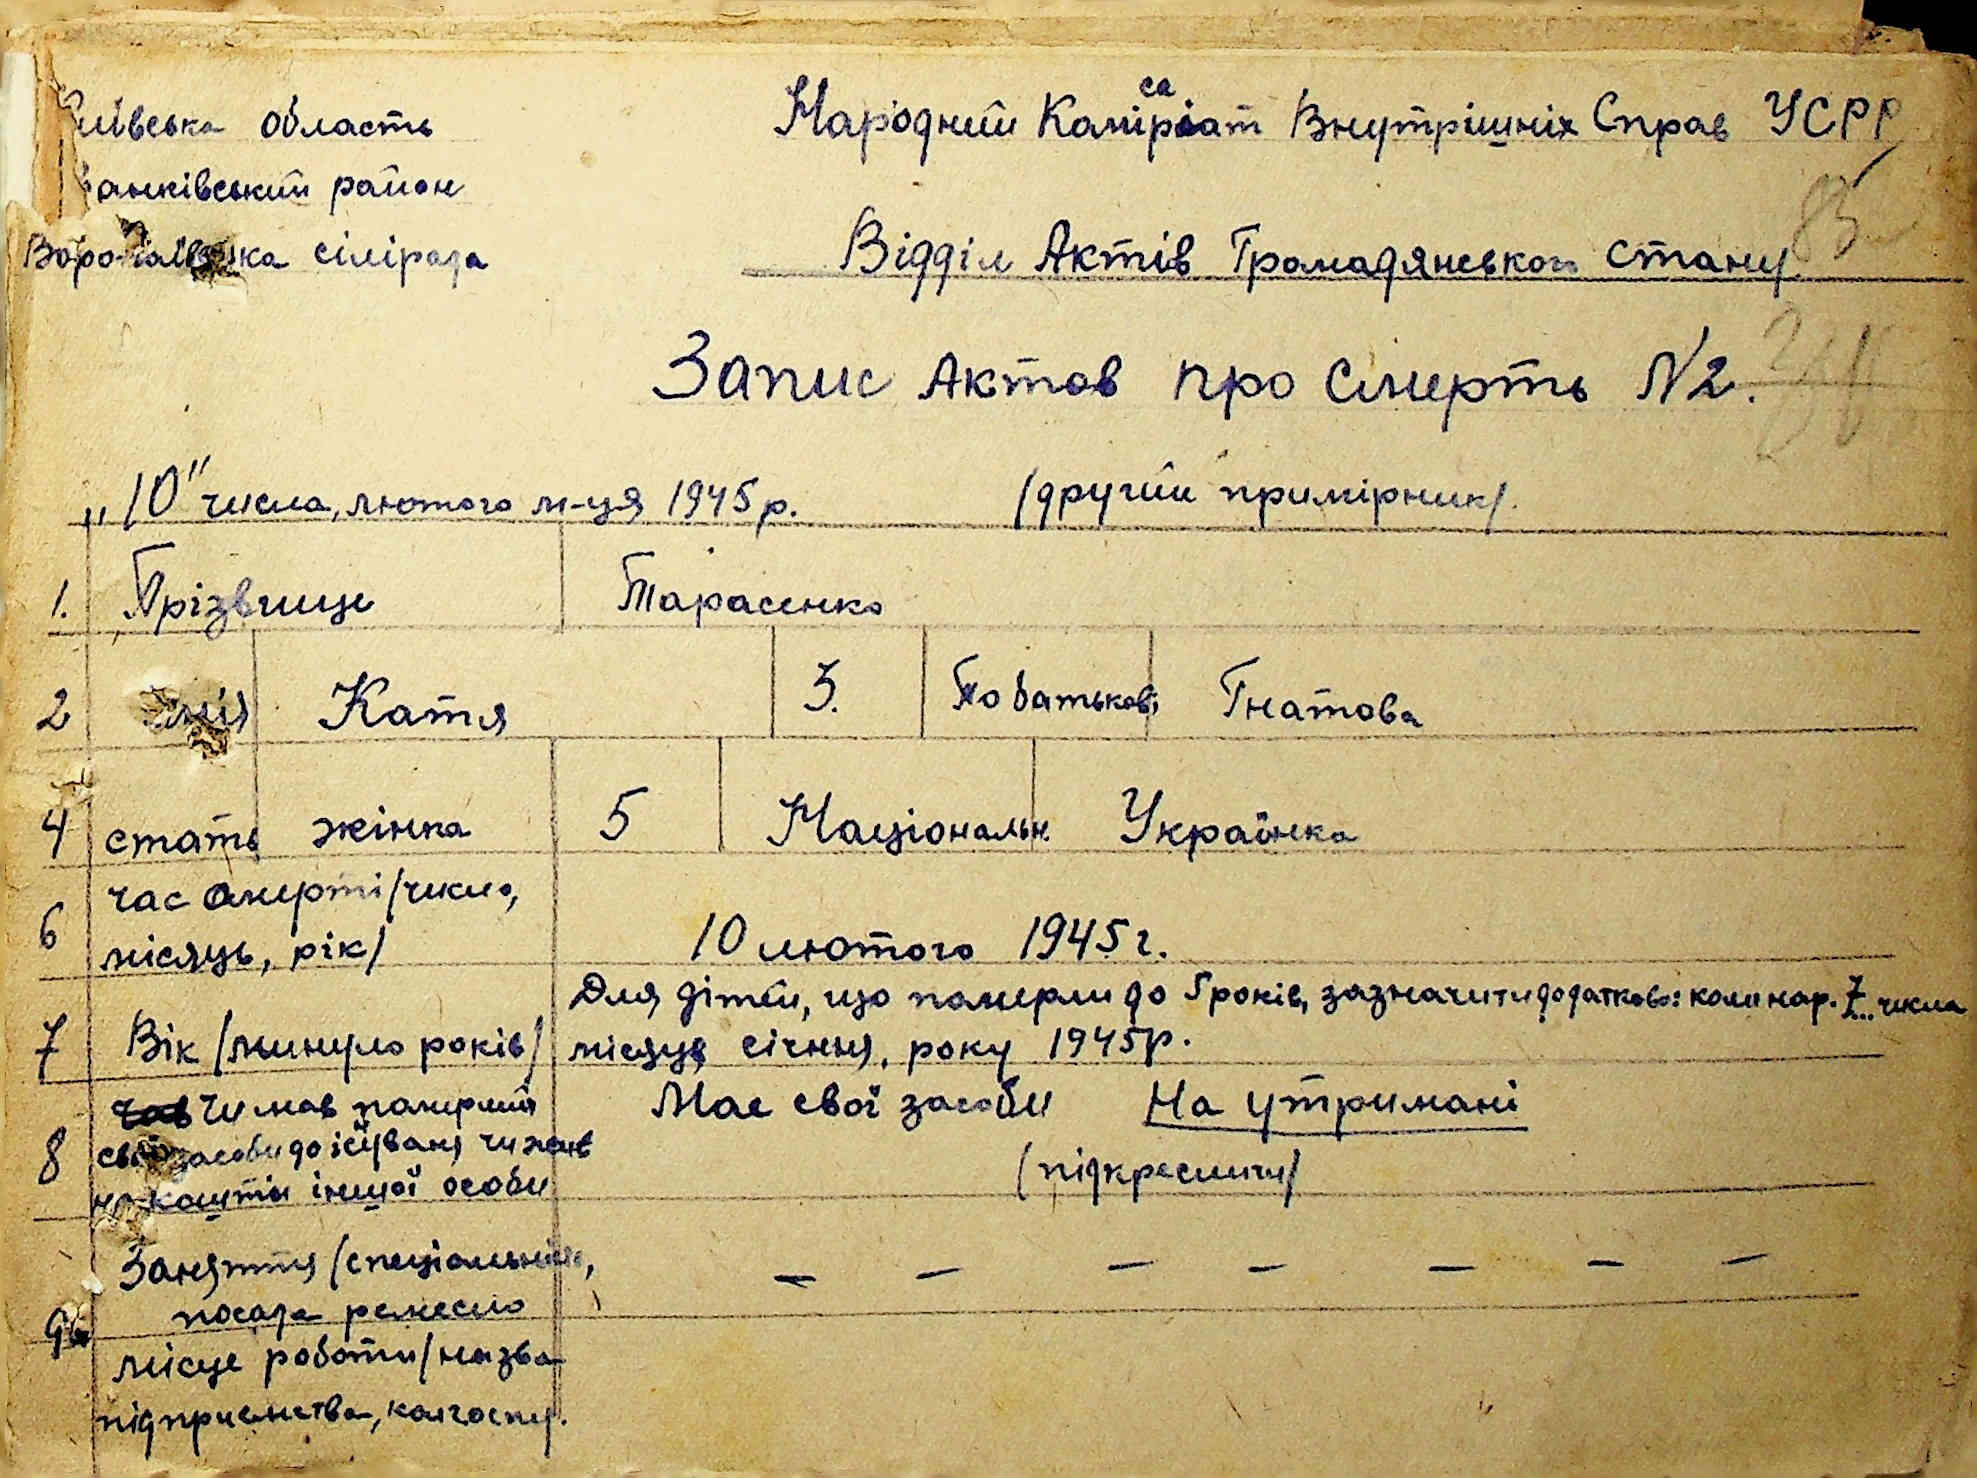 область
Народний Комірсаіат Внутрішніх Справ УСРР
район
85
сілірада
Відділ Актів Громадянської Стану
Запис Актов про Смерть №2.
„10" числа, лютого м-ця 1945 р.
/другий примірник/.
1. Прізвище Тарасенко
2 імія Катя 3. Побатькові Гнатова
4 стать жінка 5 Національн Українка
6 час смерті/число,
місяць, рік/
10 лютого 1945 г.
7 Вік /минуло років/
Для дітей, що померли до 5 років, зазначити додатково: коли нар. 7... числа
місяця січня, року 1945р.
8 Чи мав памерший
свої засоби до існувані чи жив
на кошти іншої особи
Має свої засоби На утримані
/підкреслити/
9 Заняття /спеціальність,
посада ремесло
— — — — — — —
місце роботи/назва
підприємства, колгоспу.